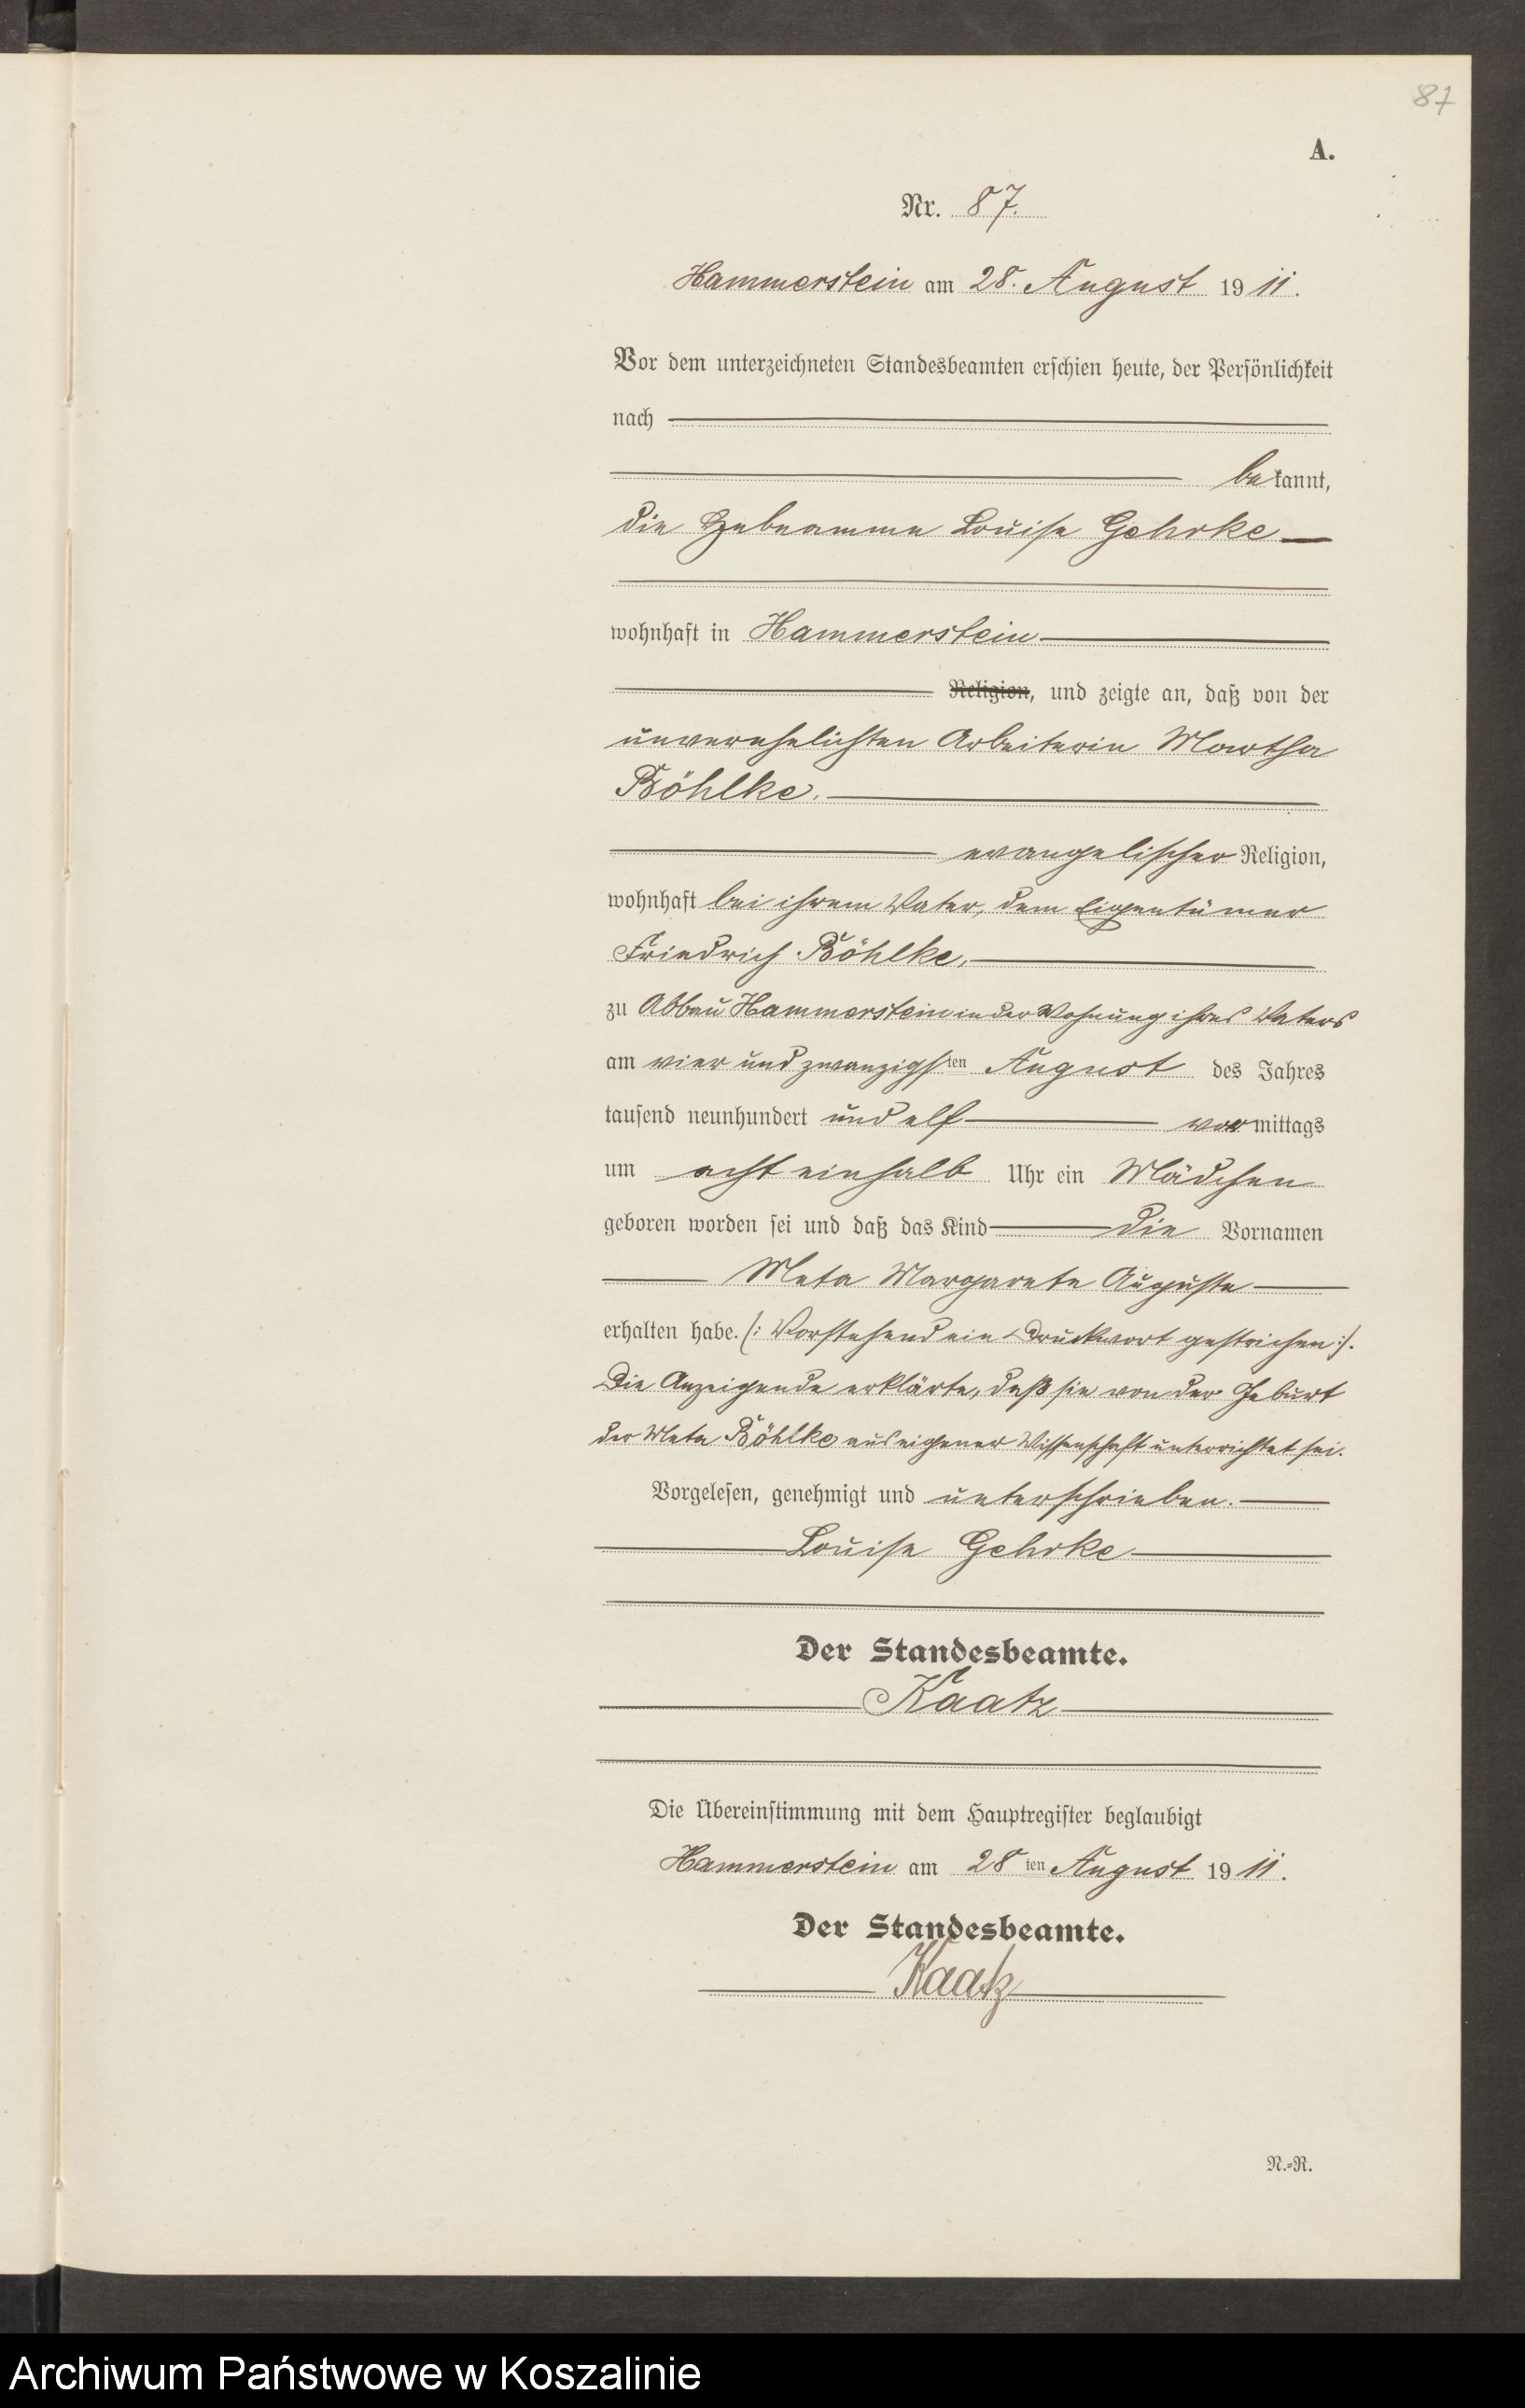 87
A.
Nr. 87.
Hammerstein am 28. August 1911.
Vor dem unterzeichneten Standesbeamten erschien heute, der Persönlichkeit
nach
bekannt,
die Hebeamme Louise Gehrke
wohnhaft in Hammerstein
Religion, und zeigte an, daß von der
unverehelichten Arbeiterin Martha
Böhlke,
evangelischer Religion,
wohnhaft bei ihrem Vater, dem Eigentümer
Friedrich Böhlke,
zu Abbau Hammerstein in der Wohnung ihres Vaters
am vier und zwanzigsten August des Jahres
tausend neunhundert und elf vormittags
um acht einhalb Uhr ein Mädchen
geboren worden sei und daß das Kind die Vornamen
Meta Margarete Auguste
erhalten habe. (: Vorstehend ein Druckwort gestrichen :).
Die Anzeigende erklärte, daß sie von der Geburt
der Meta Böhlke aus eigener Wissenschaft unterrichtet sei.
Vorgelesen, genehmigt und unterschrieben.
Louise Gehrke
Der Standesbeamte.
Kaatz
Die Übereinstimmung mit dem Hauptregister beglaubigt
Hammerstein am 28ten August 1911.
Der Standesbeamte.
Kaatz
N.-R.
Archiwum Państwowe w Koszalinie